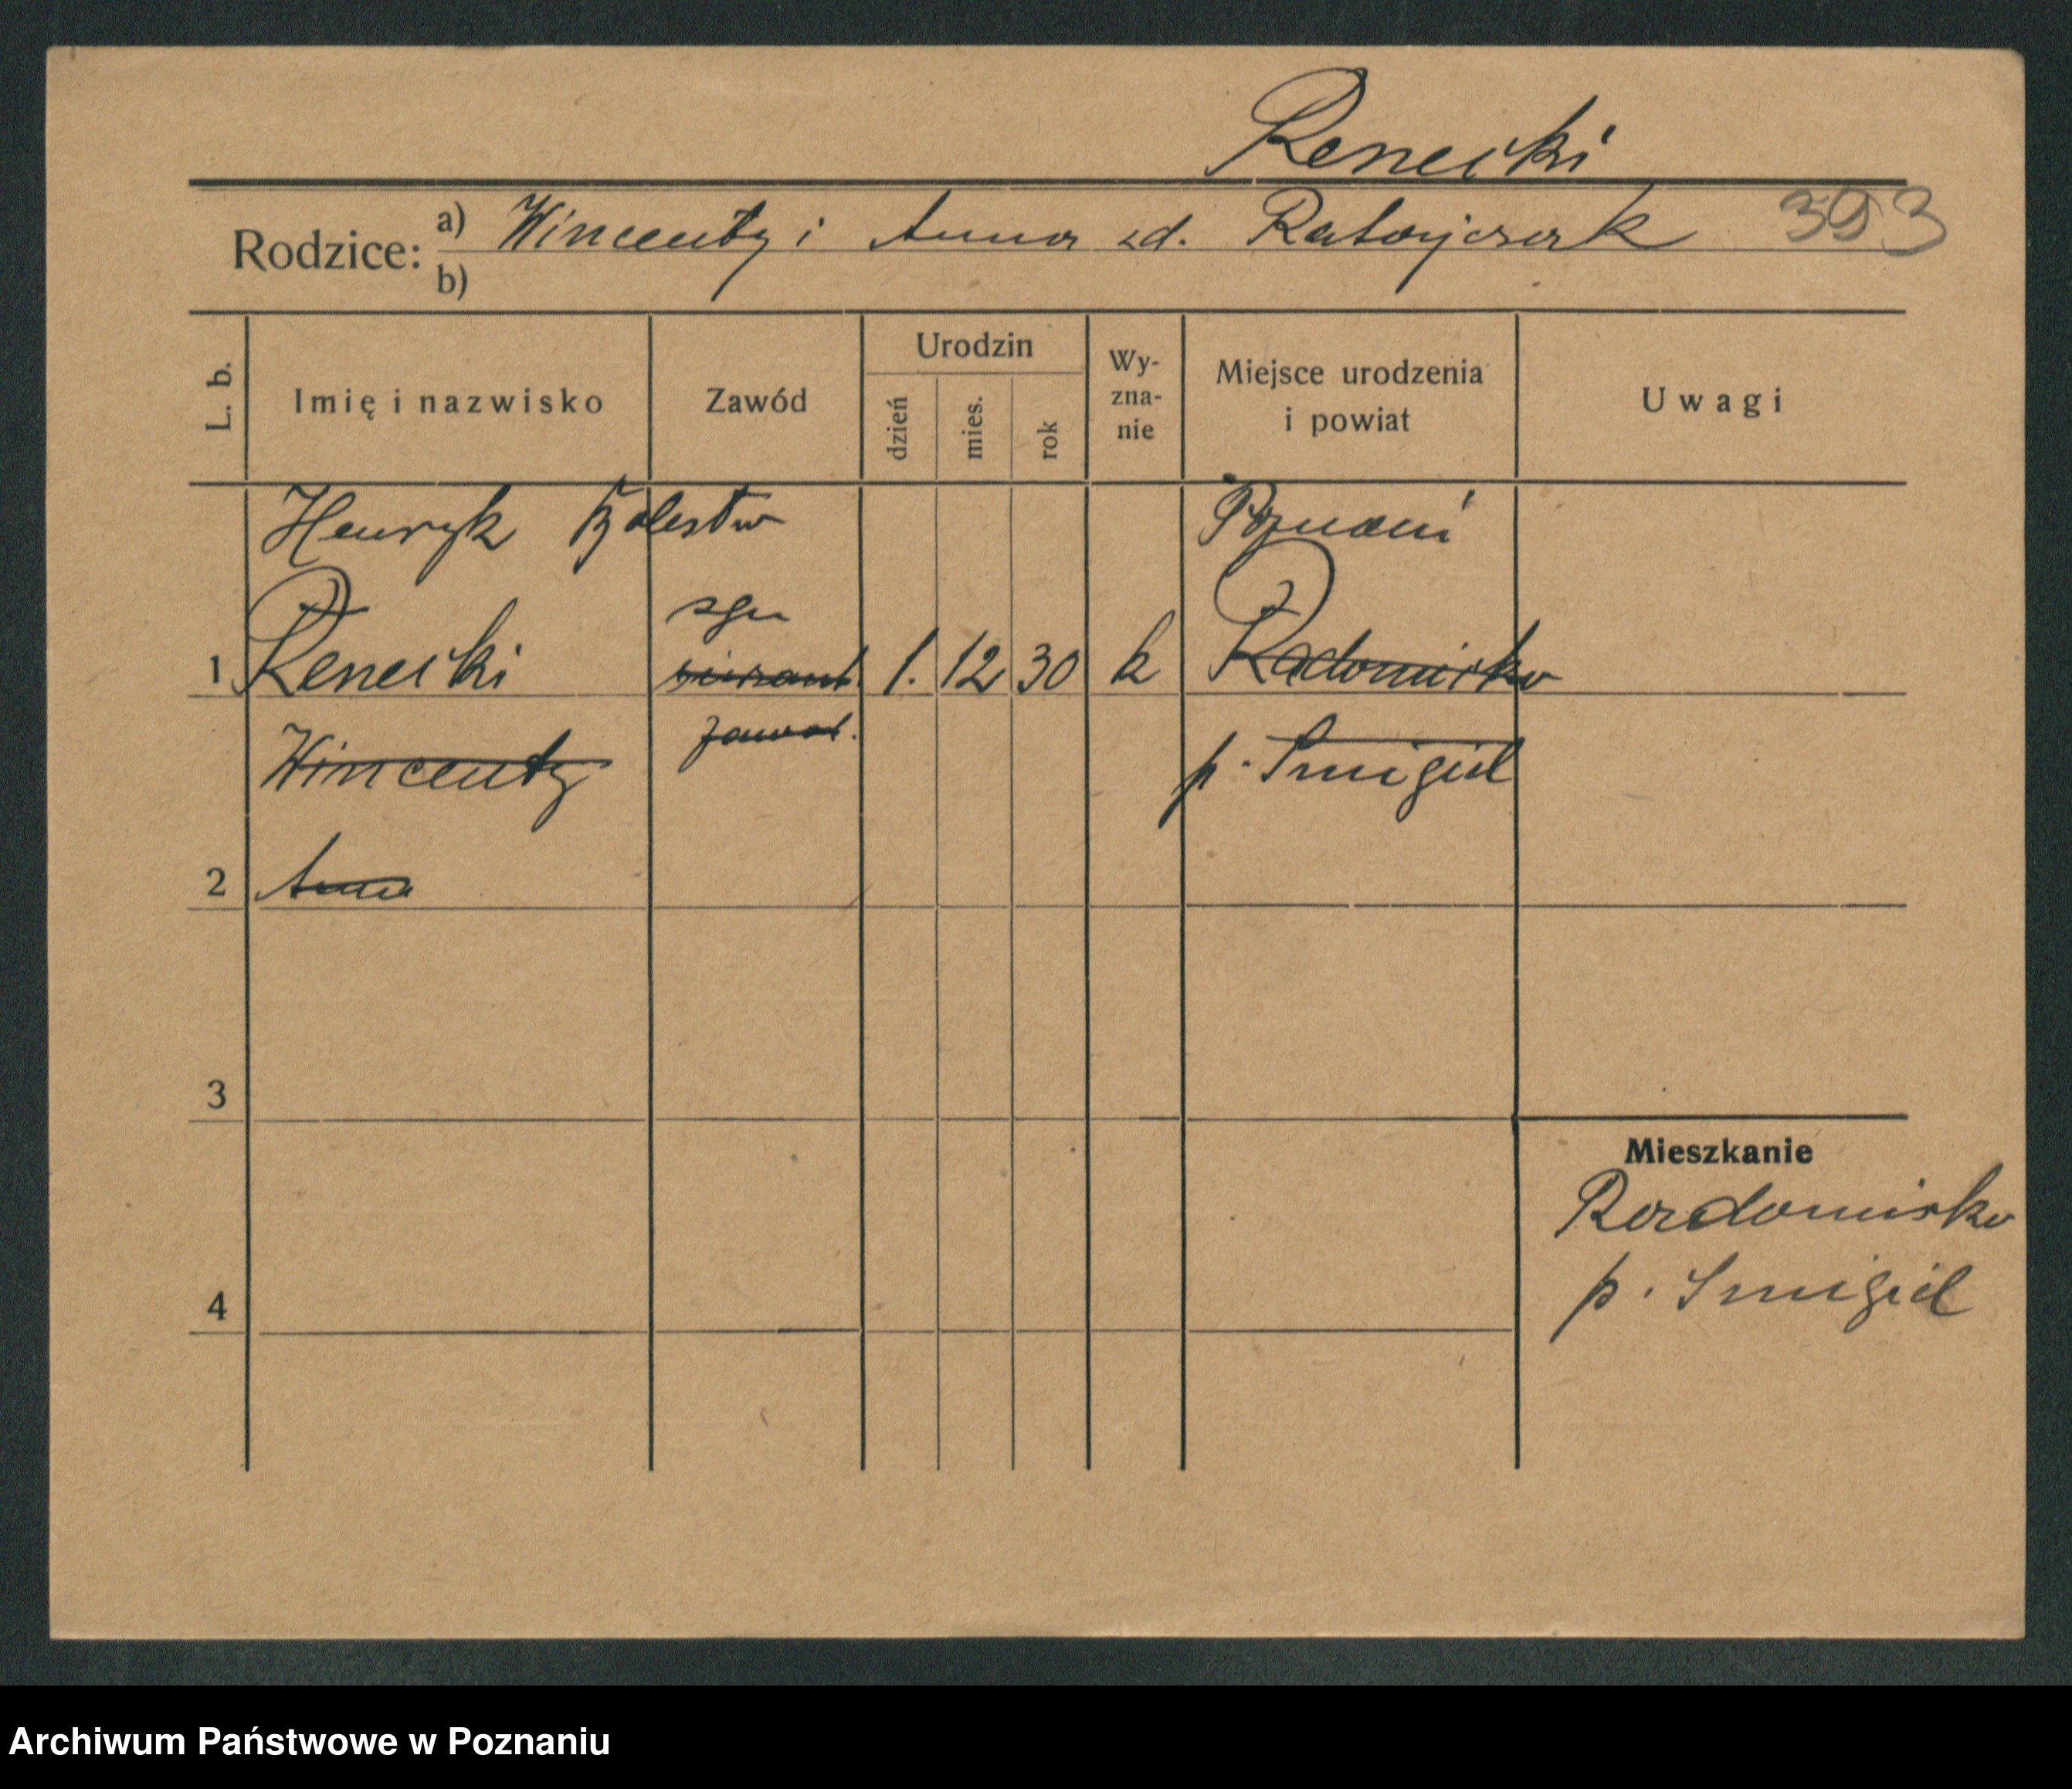 Renecki
Rodzice: a) Wincenty i Anna zd. Ratajczak 393
b)
L. b.
Imię i nazwisko
Zawód
Urodzin
dzień
mies.
rok
Wy-
zna-
nie
Miejsce urodzenia
i powiat
Uwagi
Henryk Bolesław
Poznań
syn
1 Renecki sierżant 1. 12 30 k Radomicko
zawod.
Wincenty
p. Śmigiel
2 Anna
3
4
Mieszkanie
Radomicko
p. Śmigiel
Archiwum Państwowe w Poznaniu